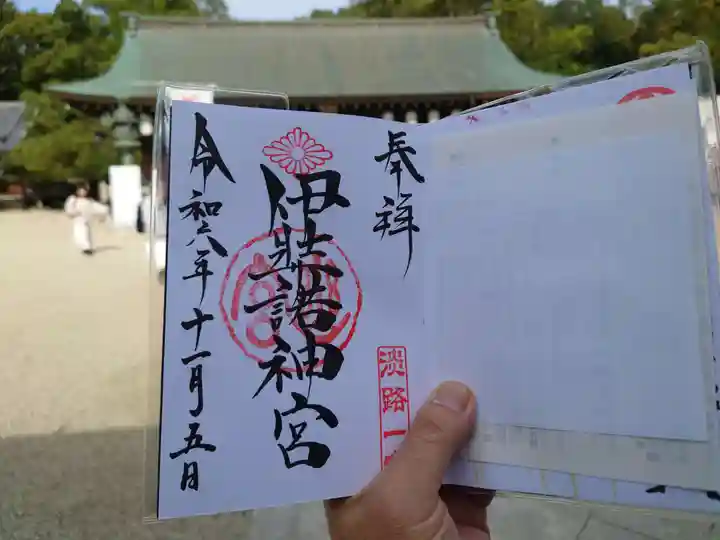 奉祥
伊弉諾神宮
令和六年十一月五日
淡路一